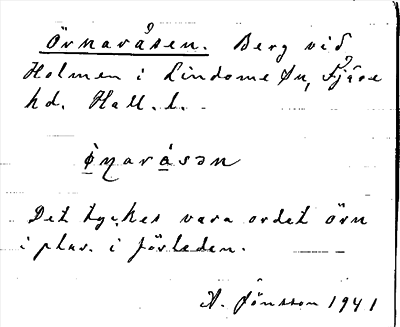 Örnaråsen. Berg vid
Holmen i Lindome sn, Fjäre
hd. Hall. l.
ö̀ṇaråsən
Det tyckes vara ordet örn
i plur. i förleden.
A. Jönsson 1941